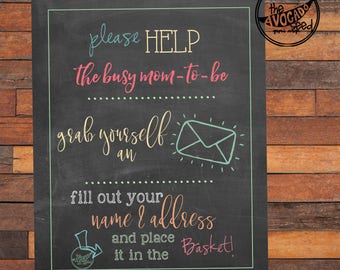 the
AVOCADO
seed
please HELP
the busy mom-to-be
grab yourself
an
fill out your
name & address
and place
it in the Basket!